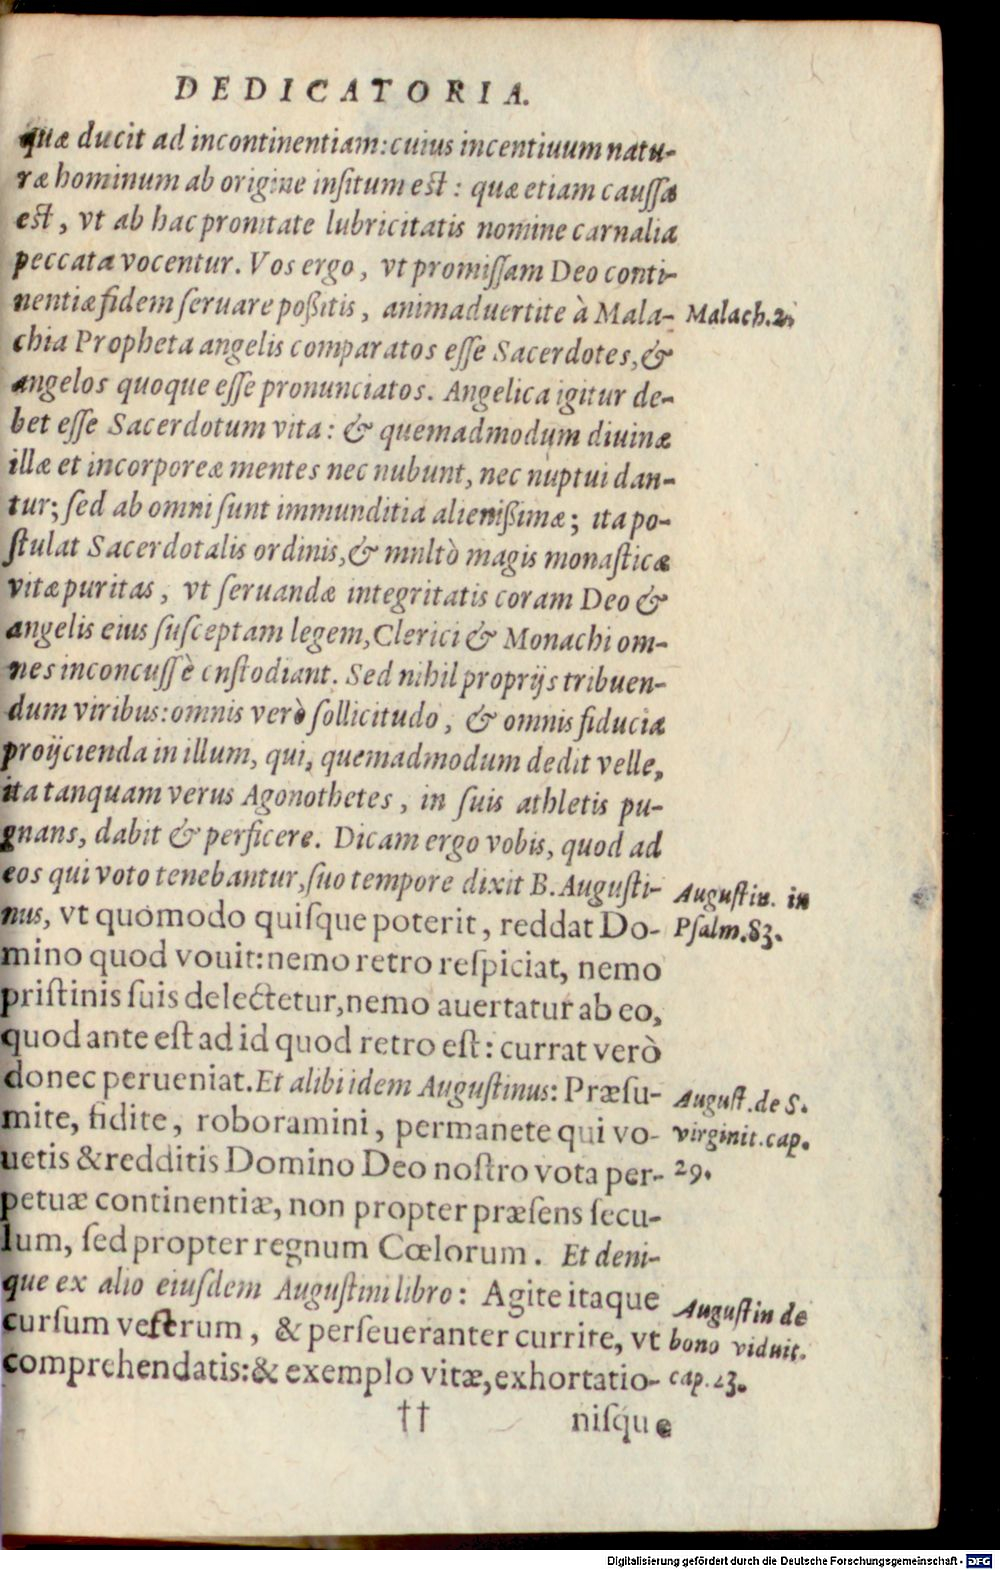 DEDICATORIA.
quæ ducit ad incontinentiam: cuius incentiuum natu-
ræ hominum ab origine inſitum eſt: quæ etiam cauſſa
eſt, vt ab hac pronitate lubricitatis nomine carnalia
peccata vocentur. Vos ergo, vt promiſſam Deo conti-
nentiæ fidem ſeruare poßitis, animaduertite à Mala-
Malach.2.
chia Propheta angelis comparatos eſſe Sacerdotes, &
angelos quoque eſſe pronunciatos. Angelica igitur de-
bet eſſe Sacerdotum vita: & quemadmodum diuinæ
illæ et incorporeæ mentes nec nubunt, nec nuptui dan-
tur; ſed ab omni ſunt immunditia alienißimæ; ita po-
ſtulat Sacerdotalis ordinis, & mnltò magis monaſticæ
vitæ puritas, vt ſeruandæ integritatis coram Deo &
angelis eius ſuſceptam legem, Clerici & Monachi om-
nes inconcuſſè cnſtodiant. Sed nihil proprijs tribuen-
dum viribus: omnis verò ſollicitudo, & omnis fiducia
proijcienda in illum, qui, quemadmodum dedit velle,
ita tanquam verus Agonothetes, in ſuis athletis pu-
gnans, dabit & perficere. Dicam ergo vobis, quod ad
eos qui voto tenebantur, ſuo tempore dixit B. Auguſti-
Auguſtin. in
nus, vt quomodo quiſque poterit, reddat Do-
Pſalm.83.
mino quod vouit: nemo retro reſpiciat, nemo
priſtinis ſuis delectetur, nemo auertatur ab eo,
quod ante eſt ad id quod retro eſt: currat verò
donec perueniat. Et alibi idem Auguſtinus: Præſu-
Auguſt. de S.
mite, fidite, roboramini, permanete qui vo-
virginit. cap.
uetis & redditis Domino Deo noſtro vota per-
29.
petuæ continentiæ, non propter præſens ſecu-
lum, ſed propter regnum Cœlorum. Et deni-
que ex alio eiuſdem Auguſtini libro: Agite itaque
Auguſtin de
curſum veſtrum, & perſeueranter currite, vt
bono viduit.
comprehendatis: & exemplo vitæ, exhortatio-
cap. 23.
†† niſque
Digitalisierung gefördert durch die Deutsche Forschungsgemeinschaft - DFG